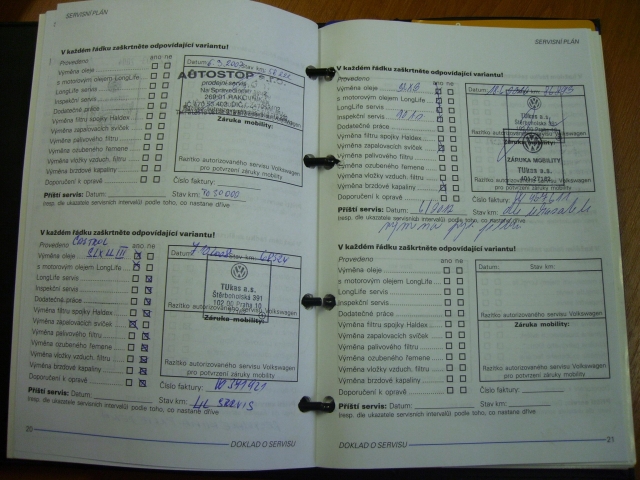 SERVISNÍ PLÁN
V každém řádku zaškrtněte odpovídající variantu!
Provedeno ano ne
Výměna oleje
s motorovým olejem LongLife
LongLife servis
Inspekční servis
Dodatečné práce
Výměna filtru spojky Haldex
Výměna zapalovacích svíček
Výměna palivového filtru
Výměna ozubeného řemene
Výměna vložky vzduch. filtru
Výměna brzdové kapaliny
Doporučení k opravě
Datum: Stav km:
AUTOSTOP
prodejní servis
Záruka mobility:
Razítko autorizovaného servisu Volkswagen
pro potvrzení záruky mobility
Číslo faktury:
Příští servis: Datum: Stav km:
(resp. dle ukazatele servisních intervalů) podle toho, co nastane dříve
V každém řádku zaškrtněte odpovídající variantu!
Provedeno CASTROL ano ne
Výměna oleje SLX LL III
s motorovým olejem LongLife
LongLife servis
Inspekční servis
Dodatečné práce
Výměna filtru spojky Haldex
Výměna zapalovacích svíček
Výměna palivového filtru
Výměna ozubeného řemene
Výměna vložky vzduch. filtru
Výměna brzdové kapaliny
Doporučení k opravě
Stav km:
TUkas a.s.
Štěrboholská 391
102 00 Praha 10
Razítko autorizovaného servisu Volkswagen
Záruka mobility:
Razítko autorizovaného servisu Volkswagen
pro potvrzení záruky mobility
Číslo faktury:
Příští servis: Datum: Stav km: LL SERVIS
(resp. dle ukazatele servisních intervalů) podle toho, co nastane dříve
20 DOKLAD O SERVISU
SERVISNÍ PLÁN
V každém řádku zaškrtněte odpovídající variantu!
Provedeno ano ne
Výměna oleje
s motorovým olejem LongLife
LongLife servis
Inspekční servis
Dodatečné práce
Výměna filtru spojky Haldex
Výměna zapalovacích svíček
Výměna palivového filtru
Výměna ozubeného řemene
Výměna vložky vzduch. filtru
Výměna brzdové kapaliny
Doporučení k opravě
Datum:
TUkas a.s.
Štěrboholská 391
Záruka mobility:
ZÁRUKA MOBILITY
TUkas a.s.
Razítko autorizovaného servisu Volkswagen
pro potvrzení záruky mobility
Číslo faktury:
Příští servis: Datum: 6/2012 Stav km:
(resp. dle ukazatele servisních intervalů) podle toho, co nastane dříve
V každém řádku zaškrtněte odpovídající variantu!
Provedeno ano ne
Výměna oleje
s motorovým olejem LongLife
LongLife servis
Inspekční servis
Dodatečné práce
Výměna filtru spojky Haldex
Výměna zapalovacích svíček
Výměna palivového filtru
Výměna ozubeného řemene
Výměna vložky vzduch. filtru
Výměna brzdové kapaliny
Doporučení k opravě
Datum: Stav km:
Razítko autorizovaného servisu Volkswagen
Záruka mobility:
Razítko autorizovaného servisu Volkswagen
pro potvrzení záruky mobility
Číslo faktury:
Příští servis: Datum: Stav km:
(resp. dle ukazatele servisních intervalů) podle toho, co nastane dříve
DOKLAD O SERVISU 21